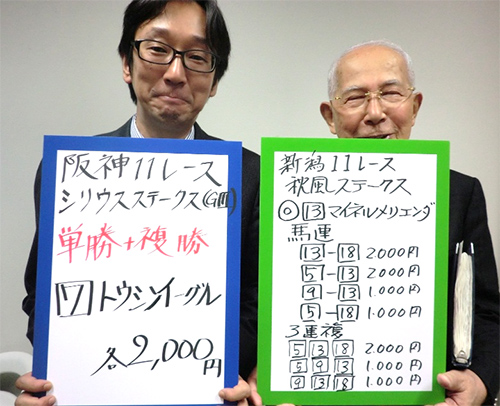 阪神11レース
シリウスステークス(GⅢ)
単勝+複勝
7トウシンイーグル
各2,000円
新潟11レース
秋風ステークス
◎13マイネルメリエンダ
馬連
13-18 2.000円
5-13 2.000円
9-13 1.000円
5-18 1.000円
3連複
5 13 18 2.000円
5 9 13 1.000円
9 13 18 1.000円